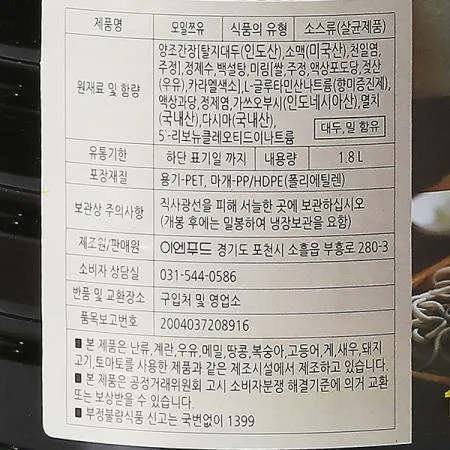 제품명 모밀쯔유 식품의 유형 소스류(살균제품)
원재료 및 함량
양조간장[탈지대두(인도산), 소맥(미국산), 천일염,
주정], 정제수, 백설탕, 미림[쌀, 주정, 액상포도당, 젖산
(우유), 카라멜색소], L-글루타민산나트륨(향미증진제),
액상과당, 정제염, 가쓰오부시(인도네시아산), 멸치
(국내산), 다시마(국내산),
5´-리보뉴클레오티드이나트륨
대두, 밀 함유
유통기한 하단 표기일 까지 내용량 1.8 L
포장재질 용기-PET, 마개-PP/HDPE(폴리에틸렌)
보관상 주의사항
직사광선을 피해 서늘한 곳에 보관하십시오
(개봉 후에는 밀봉하여 냉장보관을 요함)
제조원/판매원 이엔푸드 경기도 포천시 소흘읍 부흥로 280-3
소비자 상담실 031-544-0586
반품 및 교환장소 구입처 및 영업소
품목보고번호 2004037208916
■ 본 제품은 난류, 계란, 우유, 메밀, 땅콩, 복숭아, 고등어, 게, 새우, 돼지
고기, 토마토를 사용한 제품과 같은 제조시설에서 제조하고 있습니다.
■ 본 제품은 공정거래위원회 고시 소비자분쟁 해결기준에 의거 교환
또는 보상받을 수 있습니다.
■ 부정불량식품 신고는 국번없이 1399